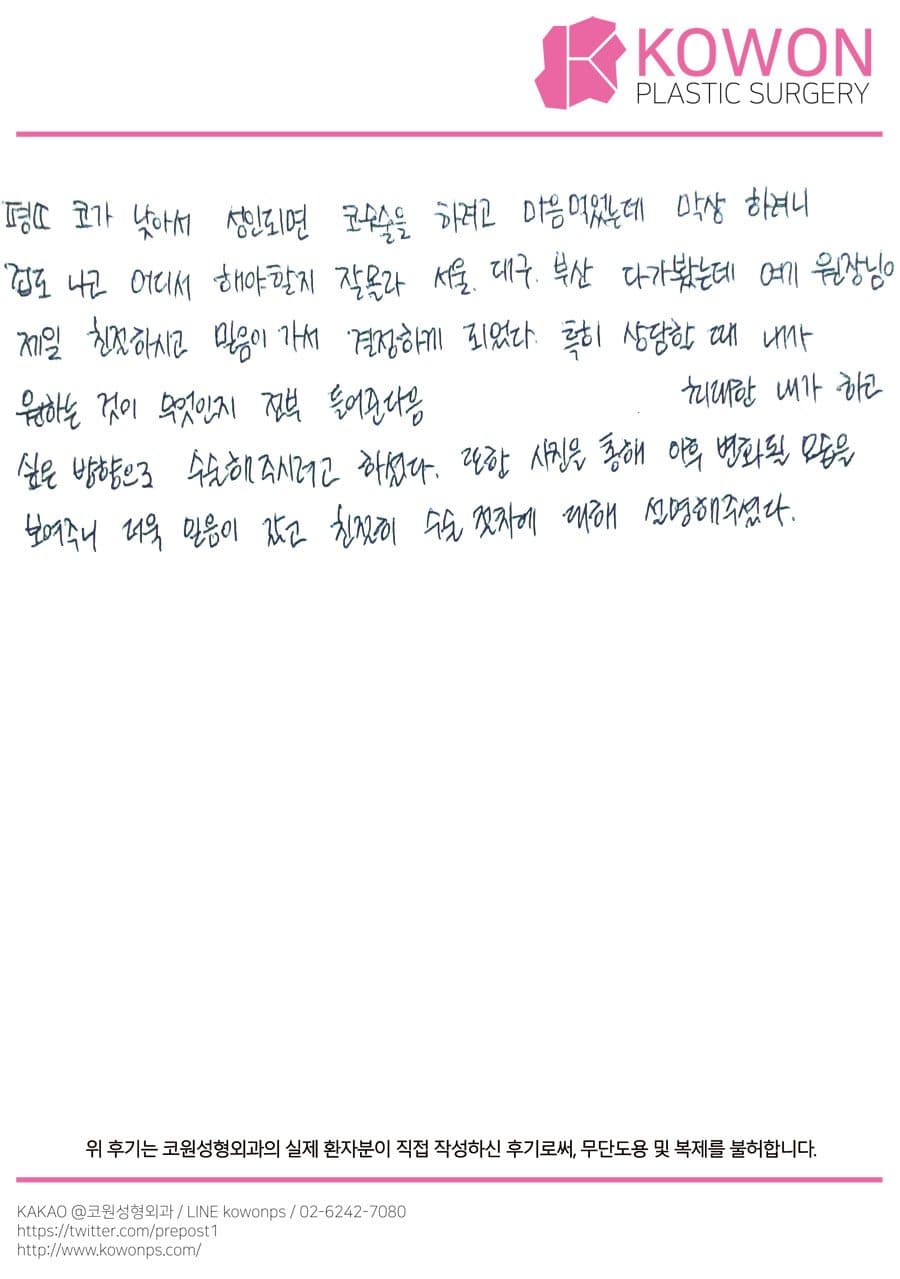 KOWON
PLASTIC SURGERY
평소 코가 낮아서 성인되면 코수술을 하려고 마음먹었는데 막상 하려니
겁도 나고 어디서 해야할지 잘몰라 서울, 대구, 부산 다가봤는데 여기 원장님이
제일 친절하시고 믿음이 가서 결정하게 되었다. 특히 상담할 때 내가
원하는 것이 무엇인지 전부 들어준다음 최대한 내가 하고
싶은 방향으로 수술해주시려고 하셨다. 또한 사진을 통해 이후 변화될 모습을
보여주니 더욱 믿음이 갔고 친절히 수술 절차에 대해 설명해주셨다.
위 후기는 코원성형외과의 실제 환자분이 직접 작성하신 후기로써, 무단도용 및 복제를 불허합니다.
KAKAO @코원성형외과 / LINE kowonps / 02-6242-7080
https://twitter.com/prepost1
http://www.kowonps.com/